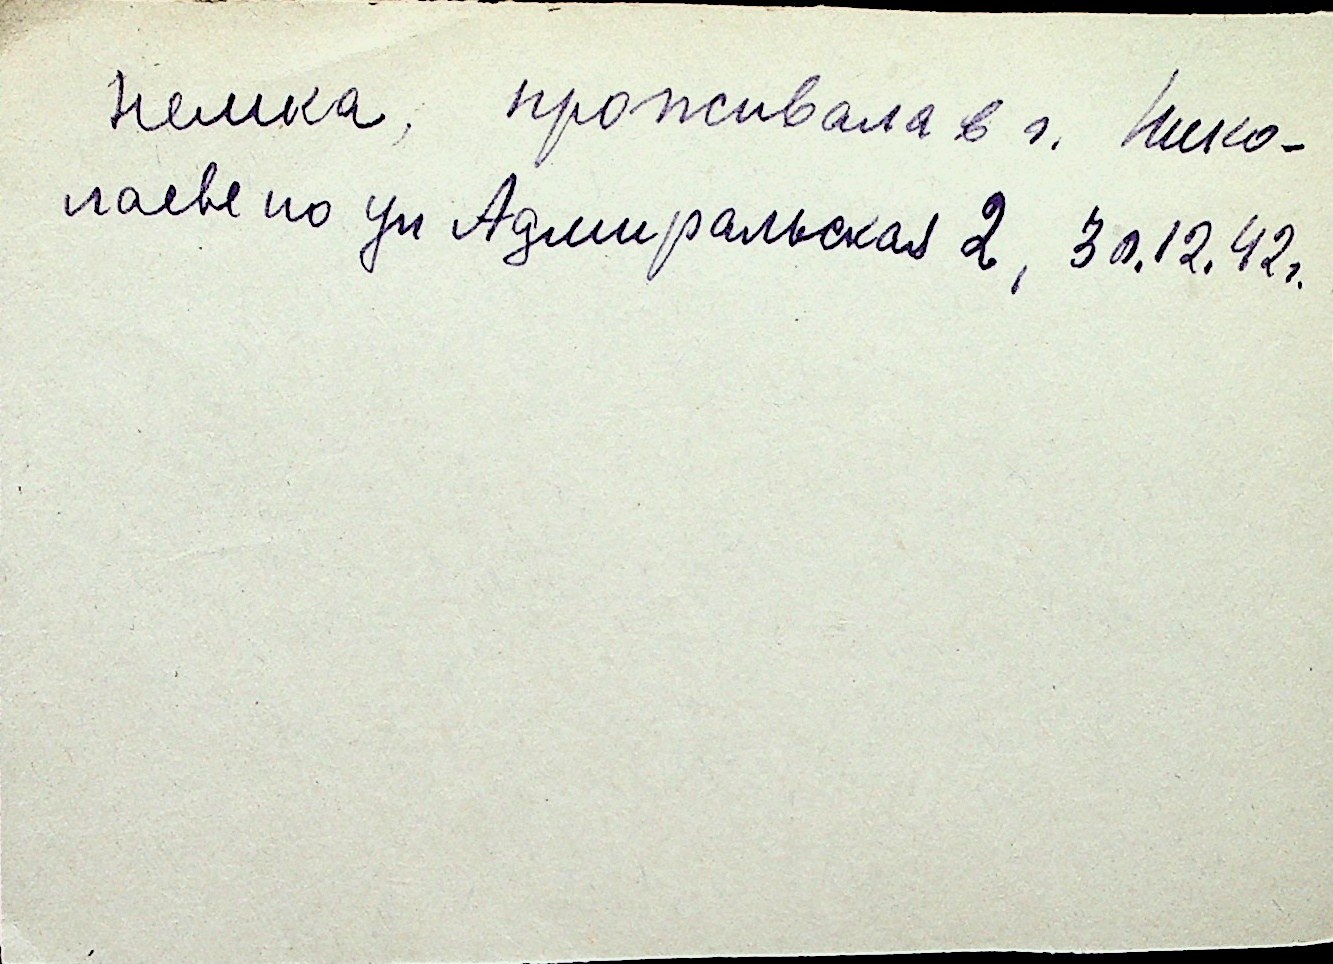 Немка, проживала в г. Нико-
лаеве по ул Адмиральская 2, 30.12.42г.